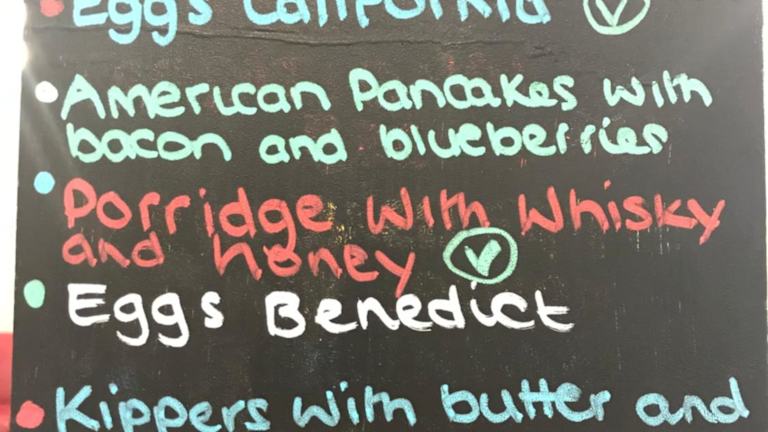 Eggs California
American Pancakes with
bacon and blueberries
Porridge with whisky
and honey
Eggs Benedict
Kippers with butter and